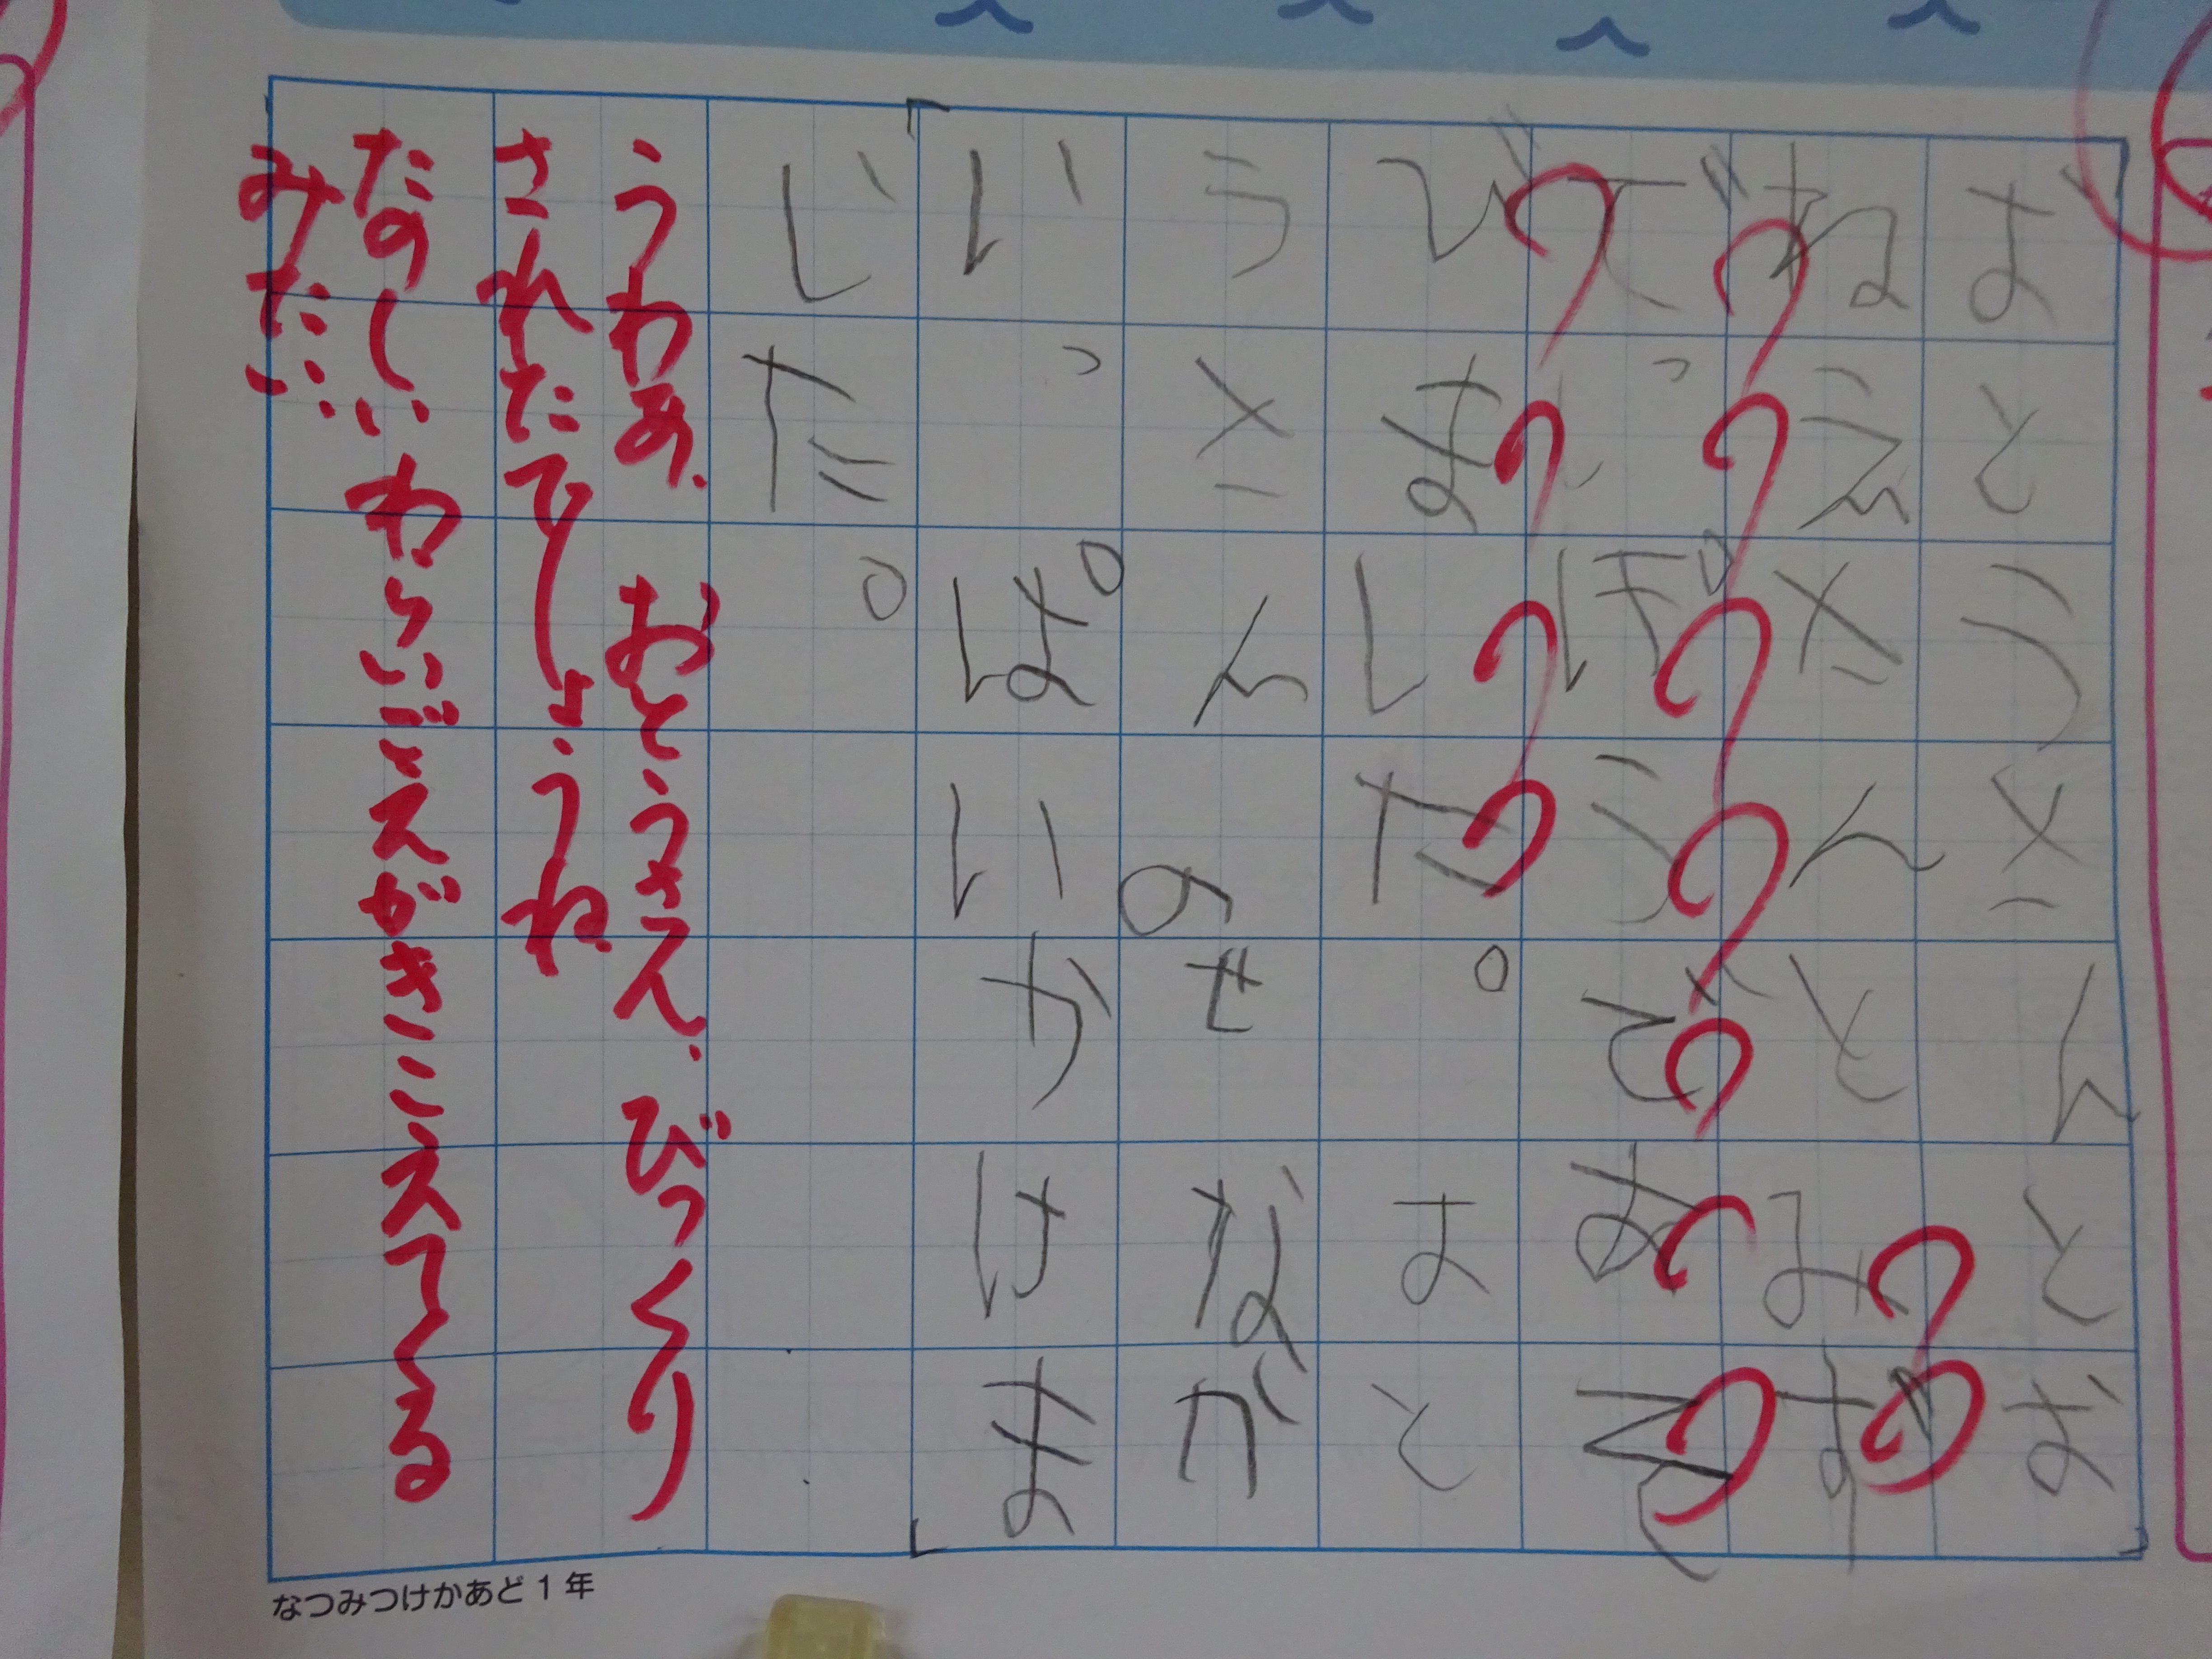 おとうさんとお
ねえさんとみず
でっぽうであそ
びました。おと
うさんのせなか
いっぱいかけま
した。
うわあ、おとうさん、びっくり
されたでしょうね
たのしいわらいごえがきこえてくる
みたい…
なつみつけかあど1年